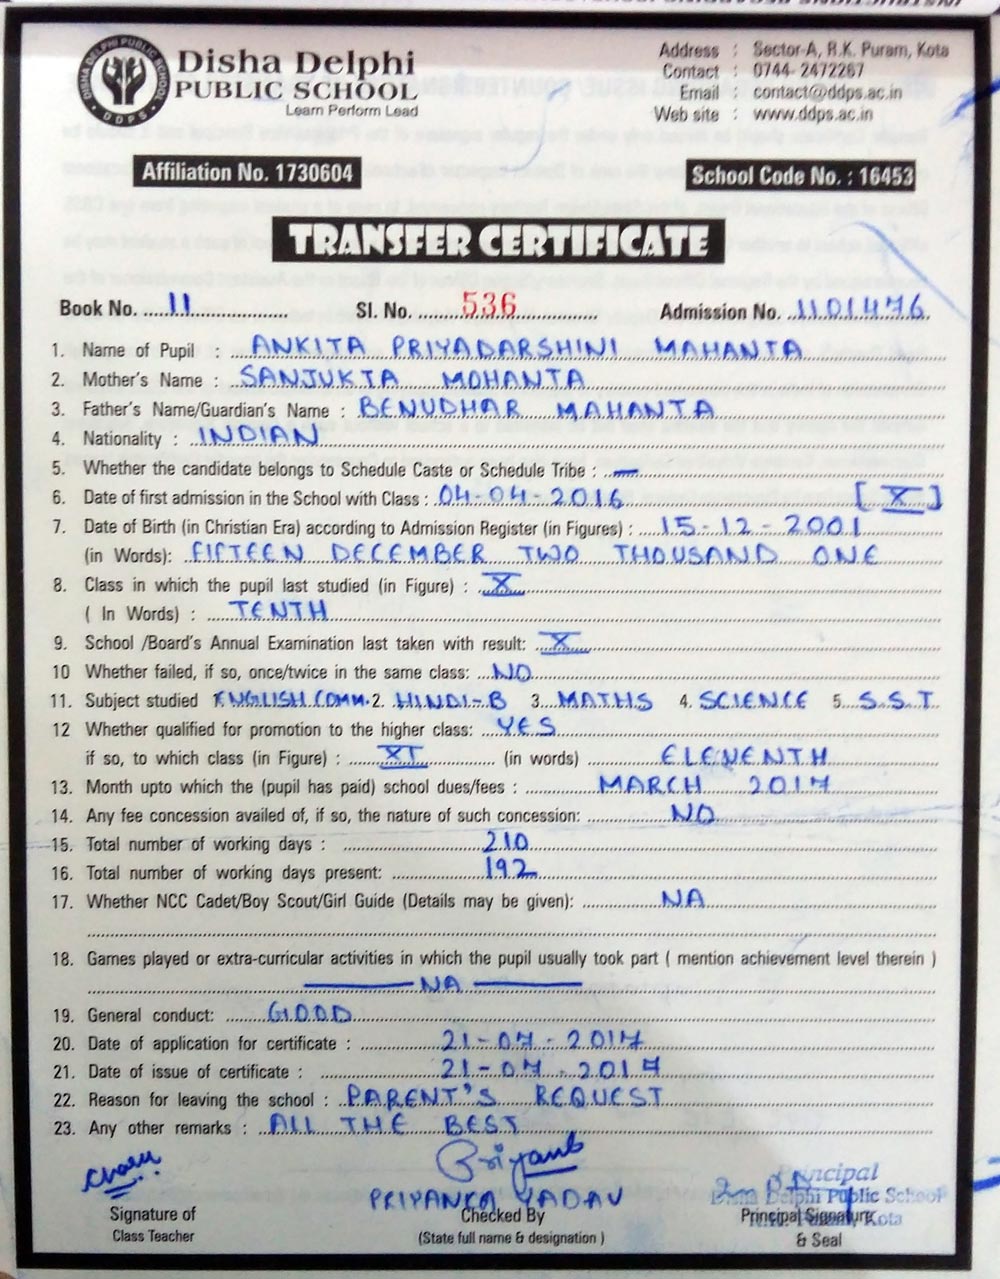 DISHA DELPHI PUBLIC SCHOOL
DDPS
Disha Delphi
PUBLIC SCHOOL
Learn Perform Lead
Address : Sector-A, R.K. Puram, Kota
Contact : 0744- 2472267
Email : contact@ddps.ac.in
Web site : www.ddps.ac.in
Affiliation No. 1730604
School Code No. : 16453
TRANSFER CERTIFICATE
Book No. 11 Sl. No. 536 Admission No. 1101476
1. Name of Pupil : ANKITA PRIYADARSHINI MAHANTA
2. Mother's Name : SANJUKTA MOHANTA
3. Father's Name/Guardian's Name : BENUDHAR MAHANTA
4. Nationality : INDIAN
5. Whether the candidate belongs to Schedule Caste or Schedule Tribe : —
6. Date of first admission in the School with Class : 04-04-2016 [X]
7. Date of Birth (in Christian Era) according to Admission Register (in Figures) : 15-12-2001
(in Words): FIFTEEN DECEMBER TWO THOUSAND ONE
8. Class in which the pupil last studied (in Figure) : X
( In Words) : TENTH
9. School /Board's Annual Examination last taken with result: X
10 Whether failed, if so, once/twice in the same class: NO
11. Subject studied 1. ENGLISH COMM. 2. HINDI-B 3. MATHS 4. SCIENCE 5. S.S.T
12 Whether qualified for promotion to the higher class: YES
if so, to which class (in Figure) : XI (in words) ELEVENTH
13. Month upto which the (pupil has paid) school dues/fees : MARCH 2017
14. Any fee concession availed of, if so, the nature of such concession: NO
15. Total number of working days : 210
16. Total number of working days present: 192
17. Whether NCC Cadet/Boy Scout/Girl Guide (Details may be given): NA
18. Games played or extra-curricular activities in which the pupil usually took part ( mention achievement level therein )
NA
19. General conduct: GOOD
20. Date of application for certificate : 21-07-2017
21. Date of issue of certificate : 21-07-2017
22. Reason for leaving the school : PARENT'S REQUEST
23. Any other remarks : ALL THE BEST
PRIYANKA YADAV
Principal
Disha Delphi Public School
Kota
Signature of
Class Teacher
Checked By
(State full name & designation )
Principal Signature
& Seal